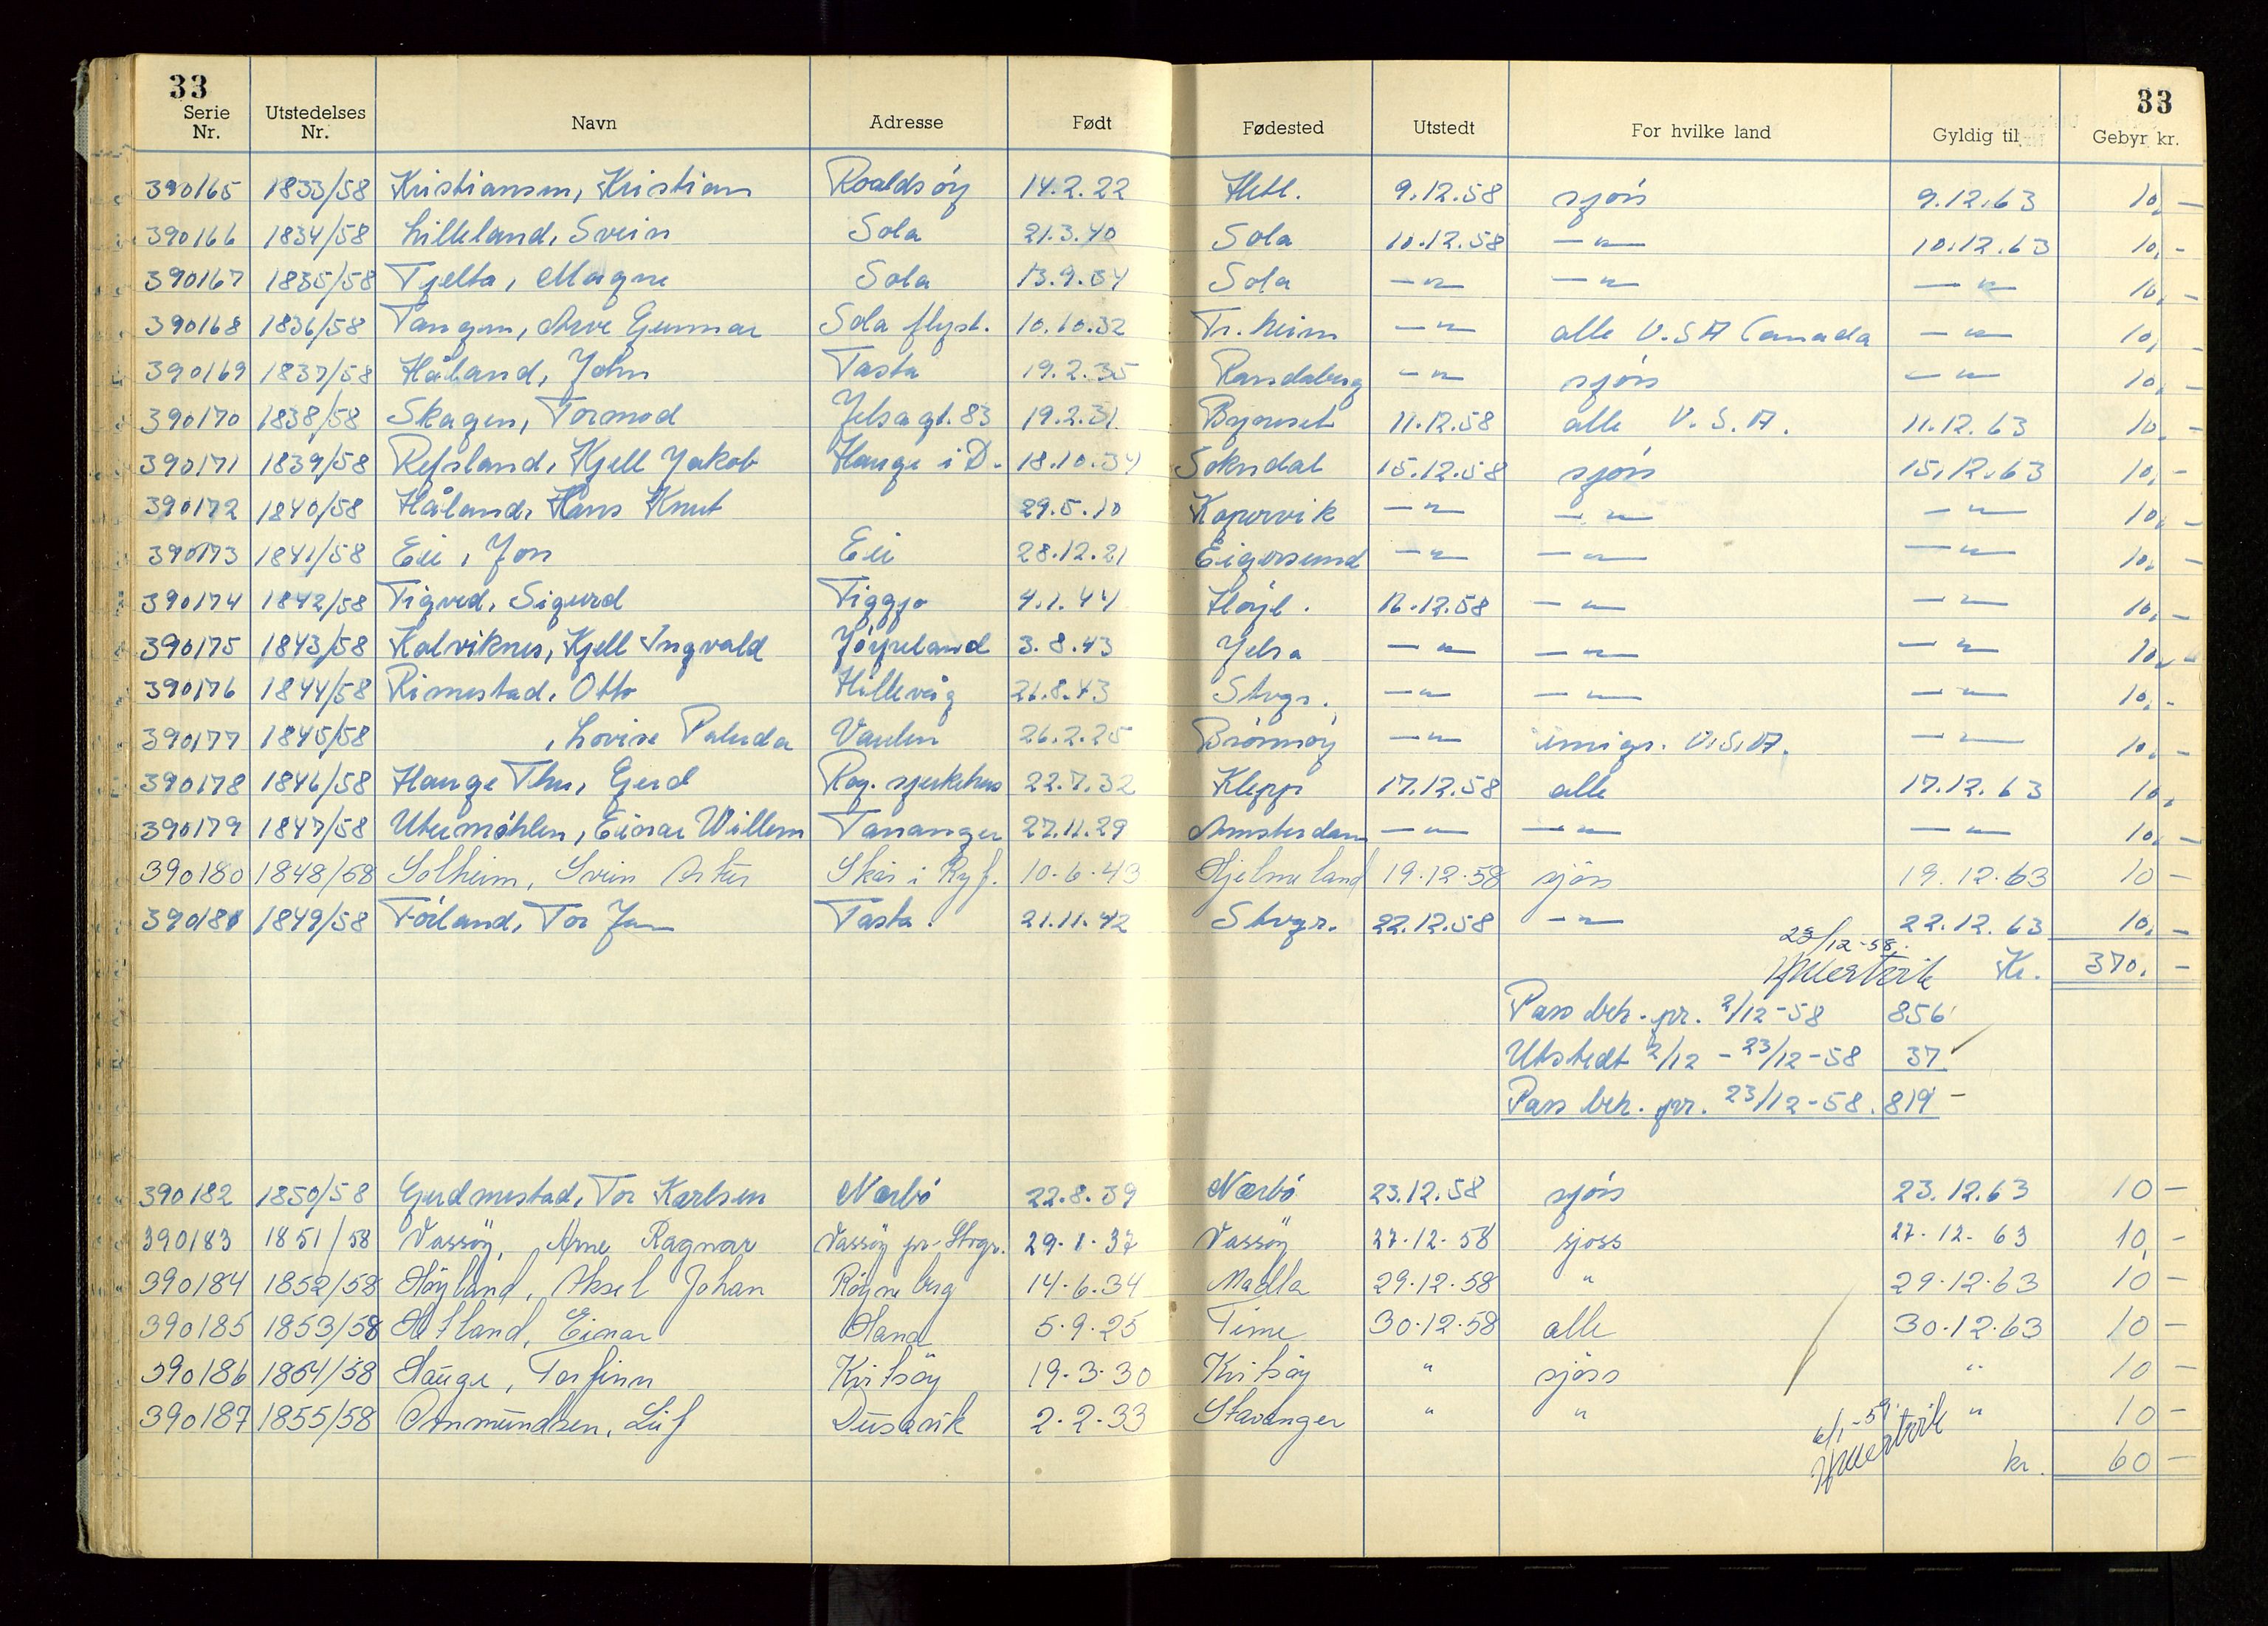 33 33
Serie Nr. Utstedelses Nr. Navn Adresse Født Fødested Utstedt For hvilke land Gyldig til Gebyr kr.
390165 1833/58 Kristiansen, Kristian Roaldsöy 14.2.22 Hetl. 9.12.58 sjøss 9.12.63 10,-
390166 1834/58 Lilleland, Svein Sola 21.3.40 Sola 10.12.58 -"- 10.12.63 10,-
390167 1835/58 Tjelta, Magne Sola 13.9.34 Sola -"- -"- -"- 10,-
390168 1836/58 Tangen, Arve Gunnar Sola flypl. 10.10.32 Tr.heim -"- alle U.S.A Canada -"- 10,-
390169 1837/58 Håland, John Tasta 19.2.35 Randaberg -"- sjøss -"- 10,-
390170 1838/58 Skagen, Tormod Jelsagt. 83 19.2.31 Byneset 11.12.58 alle U.S.A. 11.12.63 10,-
390171 1839/58 Refsland, Kjell Jakob Hauge i D. 18.10.34 Sokndal 15.12.58 sjøss 15.12.63 10,-
390172 1840/58 Håland, Hans Knut 29.5.10 Kopervik -"- -"- -"- 10,-
390173 1841/58 Eie, Jon Eie 28.12.21 Eigersund -"- -"- -"- 10,-
390174 1842/58 Tigved, Sigurd Figgjo 4.1.44 Höyl. 16.12.58 -"- -"- 10,-
390175 1843/58 Kalviknes, Kjell Ingvald Jörpeland 3.8.43 Jelsa -"- -"- -"- 10,-
390176 1844/58 Rimestad, Otto Hillevåg 21.8.43 Stvgr. -"- -"- -"- 10,-
390177 1845/58 , Lovise Paluda Vaulen 26.2.25 Brönnöy -"- emigr. U.S.A. -"- 10,-
390178 1846/58 Hauge Thu, Gerd Rog. sjukehus 22.7.32 Klepp 17.12.58 alle 17.12.63 10,
390179 1847/58 Utermöhlen, Einar Willem Tananger 27.11.29 Amsterdam -"- -"- -"- 10,-
390180 1848/58 Solheim, Svein Arter Skår i Ryf. 10.6.43 Hjelmeland 19.12.58 sjöss 19.12.63 10 -
390181 1849/58 Förland, Tor Jan Tasta 21.11.42 Stvgr. 22.12.58 -"- 22.12.63 10,-
23/12-58. Kr. 370,-
Pass beh. pr. 2/12-58 856
Utstedt 2/12 - 23/12-58 37
Pass beh. pr. 23/12-58. 819 -
390182 1850/58 Gjerdmestad, Tor Karlsen Nærbö 22.8.39 Nærbö 23.12.58 sjøss 23.12.63 10 -
390183 1851/58 Vassöy, Arne Ragnar Vassöy pr. Stvgr. 29.1.37 Vassöy 27.12.58 sjoss 27.12.63 10,-
390184 1852/58 Höyland, Aksel Johan Röyneberg 14.6.34 Madla 29.12.58 " 29.12.63 10 -
390185 1853/58 Hetland, Einar Hana 5.9.25 Time 30.12.58 alle 30.12.63 10 -
390186 1854/58 Hauge, Torfinn Kvitsöy 19.3.30 Kvitsöy " sjöss " 10 -
390187 1855/58 Ommundsen, Leif Dusavik 2.2.33 Stavanger " " " 10 -
6/1-59. kr. 60 -